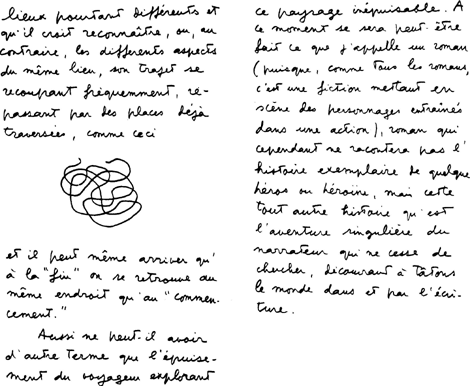 lieux pourtant différents et
qu'il croit reconnaître, ou, au
contraire, les différents aspects
du même lieu, son trajet se
recoupant fréquemment, re-
passant par des places déjà
traversées, comme ceci
et il peut même arriver qu'
à la "fin" on se retrouve au
même endroit qu'au "commen-
cement."
Aussi ne peut-il avoir
d'autre terme que l'épuise-
ment du voyageur explorant
ce paysage inépuisable. A
ce moment se sera peut-être
fait ce que j'appelle un roman
(puisque, comme tous les romans,
c'est une fiction mettant en
scène des personnages entraînés
dans une action), roman qui
cependant ne racontera pas l'
histoire exemplaire de quelque
héros ou héroïne, mais cette
tout autre histoire qu'est
l'aventure singulière du
narrateur qui ne cesse de
chercher, découvrant à tâtons
le monde dans et par l'écri-
ture.